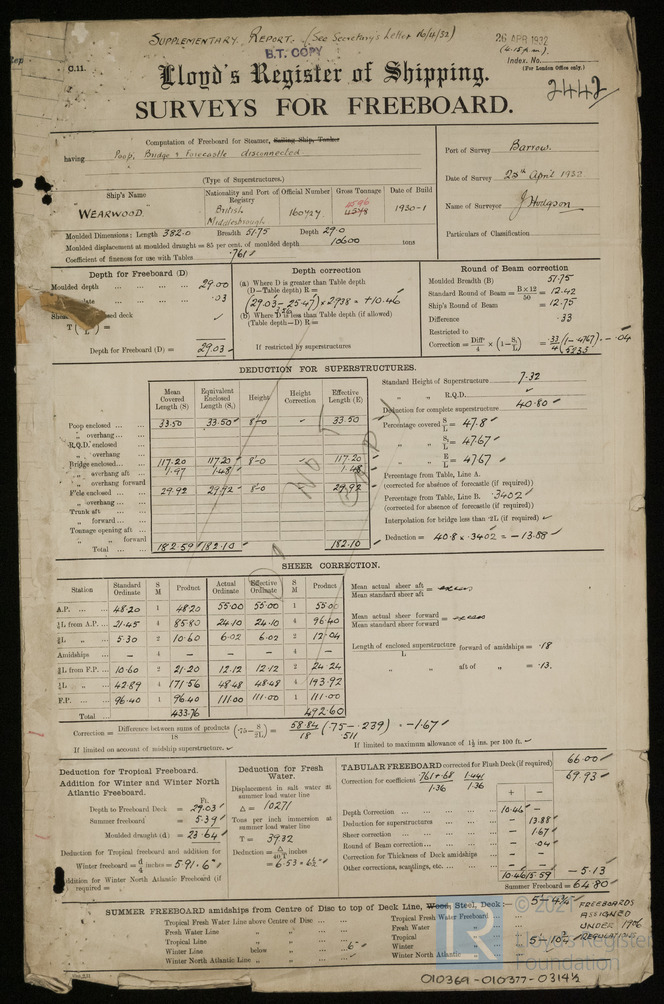 SUPPLEMENTARY REPORT. (See Secretary's Letter 16/4/32)
B.T. COPY
26 APR 1932
(4.15 p.m.)
Index. No.
(For London Office only.)
C.11.
2442
Lloyd's Register of Shipping.
SURVEYS FOR FREEBOARD.
Computation of Freeboard for Steamer, Sailing Ship, Tanker
having Poop, Bridge & Forecastle disconnected
(Type of Superstructures.)
Port of Survey Barrow.
Date of Survey 25th April 1932
Name of Surveyor J Hodgson
Particulars of Classification
Ship's Name
Nationality and Port of Registry
Official Number
Gross Tonnage
Date of Build
WEARWOOD.
British
Middlesbrough
160427
4596
4598
1930-1
Moulded Dimensions: Length 382.0 Breadth 51.75 Depth 29.0
Moulded displacement at moulded draught = 85 per cent. of moulded depth 10600 tons
Coefficient of fineness for use with Tables .761
Depth for Freeboard (D)
Moulded depth ... 29.00
.03
Depth for Freeboard (D) = 29.03
Depth correction
(a) Where D is greater than Table depth
(D—Table depth) R =
(29.03-25.47) × 2.938 = +10.46
(b) Where D is less than Table depth (if allowed)
(Table depth—D) R =
If restricted by superstructures
Round of Beam correction
Moulded Breadth (B) 51.75
Standard Round of Beam = B×12/50 = 12.42
Ship's Round of Beam = 12.75
Difference .33
Restricted to
Correction = Diff/4 × (1-S₁/L) = .33/4 (1-.4767) = -.04
.5233
DEDUCTION FOR SUPERSTRUCTURES.
Mean Covered Length (S)
Equivalent Enclosed Length (S₁)
Height
Height Correction
Effective Length (E)
Poop enclosed ... 33.50 33.50 8'-0 33.50
„ overhang ...
R.Q.D. enclosed
„ overhang
Bridge enclosed... 117.20 117.20 8'-0 117.20
„ overhang aft 1.97 1.48 1.48
„ overhang forward
F'cle enclosed ... 29.92 29.92 8'-0 29.92
„ overhang ...
Trunk aft
„ forward ...
Tonnage opening aft ...
„ „ forward
Total ... 182.59 182.10 182.10
Standard Height of Superstructure 7.32
„ „ R.Q.D.
Deduction for complete superstructure 40.80
Percentage covered S/L = 47.8
„ „ S₁/L = 47.67
„ „ E/L = 47.67
Percentage from Table, Line A.
(corrected for absence of forecastle (if required))
Percentage from Table, Line B. .3402
(corrected for absence of forecastle (if required))
Interpolation for bridge less than ·2L (if required)
Deduction = 40.8 × .3402 = -13.88
SHEER CORRECTION.
Station
Standard Ordinate
S M
Product
Actual Ordinate
Effective Ordinate
S M
Product
A.P. ... 48.20 1 48.20 55.00 55.00 1 55.00
⅙L from A.P. ... 21.45 4 85.80 24.10 24.10 4 96.40
⅓L „ 5.30 2 10.60 6.02 6.02 2 12.04
Amidships ... - 4 - - - 4 -
⅓L from F.P. ... 10.60 2 21.20 12.12 12.12 2 24.24
⅙L „ 42.89 4 171.56 48.48 48.48 4 193.92
F.P. ... 96.40 1 96.40 111.00 111.00 1 111.00
Total ... 433.76 492.60
Mean actual sheer aft / Mean standard sheer aft = excess
Mean actual sheer forward / Mean standard sheer forward = excess
Length of enclosed superstructure / L forward of amidships = .18
„ „ aft of „ = .13.
Correction = Difference between sums of products/18 (·75-S/2L) = 58.84/18 (.75-.239) = -1.67
.511
If limited on account of midship superstructure.
If limited to maximum allowance of 1½ ins. per 100 ft.
Deduction for Tropical Freeboard.
Addition for Winter and Winter North Atlantic Freeboard.
Ft.
Depth to Freeboard Deck = 29.03
Summer freeboard = 5.39
Moulded draught (d) = 23.64
Deduction for Tropical freeboard and addition for
Winter freeboard = d/4 inches = 5.91 = 6"
Addition for Winter North Atlantic Freeboard (if required =
Deduction for Fresh Water.
Displacement in salt water at summer load water line
Δ = 10271
Tons per inch immersion at summer load water line
T = 39.32
Deduction = Δ/40T inches
= 6.53 = 6½"
TABULAR FREEBOARD corrected for Flush Deck (if required) 66.00
Correction for coefficient .761+.68/1.36 1.441/1.36 69.93
+ -
Depth Correction ... 10.46 -
Deduction for superstructures ... - 13.88
Sheer correction ... - 1.67
Round of Beam correction ... - .04
Correction for Thickness of Deck amidships - -
Other corrections, scantlings, etc. ... - -
10.46 15.59 -5.13
Summer Freeboard = 64.80
5'-4¾"
SUMMER FREEBOARD amidships from Centre of Disc to top of Deck Line, Wood, Steel, Deck:—
Tropical Fresh Water Line above Centre of Disc ...
Fresh Water Line „ „
Tropical Line „ „
Winter Line below „ 6"
Winter North Atlantic Line „ „
Tropical Fresh Water Freeboard
Fresh Water „
Tropical „
Winter „ 5'-10¾"
Winter North Atlantic „
FREEBOARDS
ASSIGNED
UNDER 1906
REGULATIONS
© 2021
LR
Lloyd's Register
Foundation
010369-010377-0314½